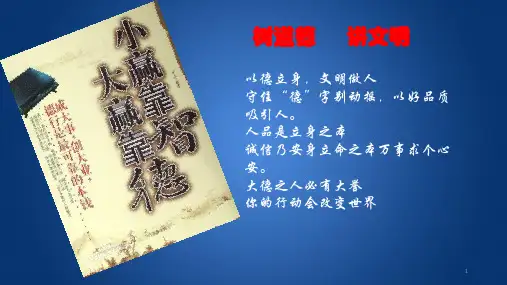 树道德 讲文明
以德立身，文明做人
守住“德”字别动摇，以好品质
吸引人。
人品是立身之本
诚信乃安身立命之本万事求个心
安。
大德之人必有大誉
你的行动会改变世界
小赢靠智
大赢靠德
成大事、创大业，
德行是最可靠的本钱
1